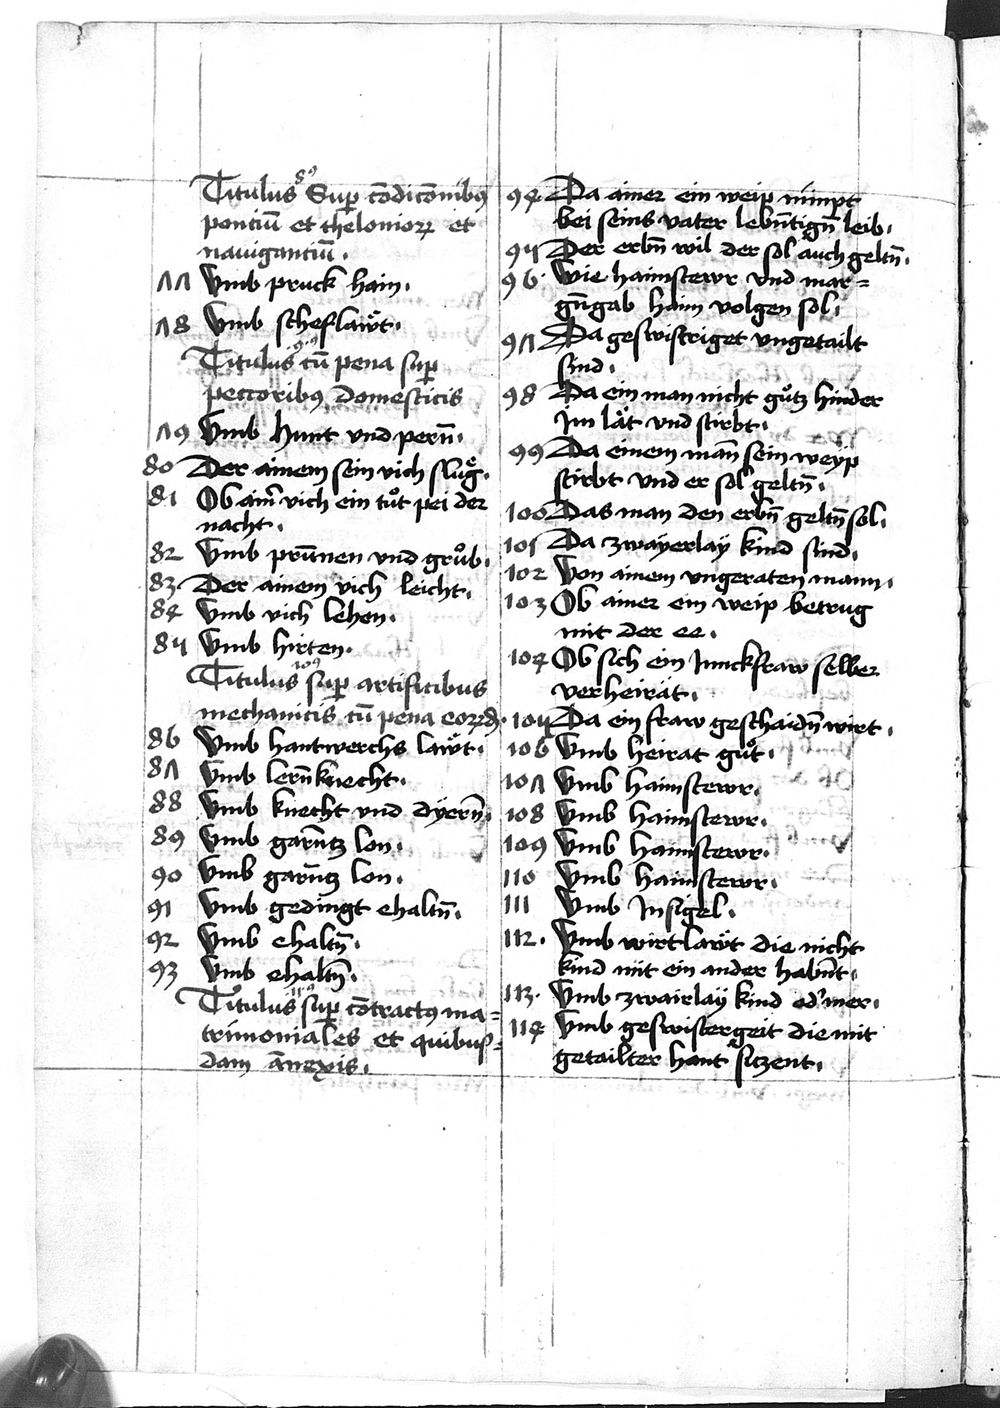 Titulus 8ꝯ Sup̱ cōdicōnibꝯ
pontiū et thelonioꝝ et
nauigantiū .
77 Vmb pruck hain .
78 Vmb scheflawͤt .
Titulus 9ꝯ cū pena sup̱
peccoribꝯ domesticis
79 Vmb hunt vnd pern̄ .
80 Der ainem sein vich sluͤg .
81 Ob aim̄ vich ein tuͦt pei der
nacht .
82 Vmb prūnen vnd gruͦb .
83 Der ainem vich leicht .
84 Vmb vich lehen .
85 Vmb hirten .
Titulus 10ꝯ sup̱ artificibus
mechanicis cū pena eoꝝd .
86 Vmb hantwerchs lawͤt .
87 Vmb lern̄knecht .
88 Vmb knecht vnd dyern̄ .
89 Vmb garn̄tz lon .
90 Vmb garn̄tz lon .
91 Vmb gedingt ehaltn̄ .
92 Vmb ehaltn̄ .
93 Vmb ehaltn̄ .
Titulus 11ꝯ sup̱ cōtractꝯ ma=
trimoniales et quibus=
dam ānexis .
94 Da ainer ein weip nimpt
bei seins vater lebn̄tign̄ leib .
95 Der erbn̄ wil der sol auch geltn̄ .
96 Wie haimstewr vnd mar=
gn̄gab haim volgen sol .
97 Da geswistriget vngetailt
sind .
98 Da ein man nicht guͦtz hinder
im laͤt vnd stirbt .
99 Da einem man̄ sein weyp
stirbt vnd er sol geltn̄ .
100 Das man den erbn̄ geltn̄ sol .
101 Da zwayerlay kind sind .
102 Von ainem vngeraten mann .
103 Ob ainer ein weip betrug
mit der ee .
104 Ob sich ein Junckfraw selber
verheirat .
105 Da ein fraw geschaidn̄ wirt .
106 Vmb heirat guͦt .
107 Vmb haimstewr .
108 Vmb haimstewr .
109 Vmb haimstewr .
110 Vmb haimstewr .
111 Vmb Insigel .
112 . Vmb wirtlawͤt die nicht
kind mit ein ander habn̄t .
113 . Vmb zwairlay kind od' mer .
114 Vmb geswistergeit die mit
getailter hant siczent .